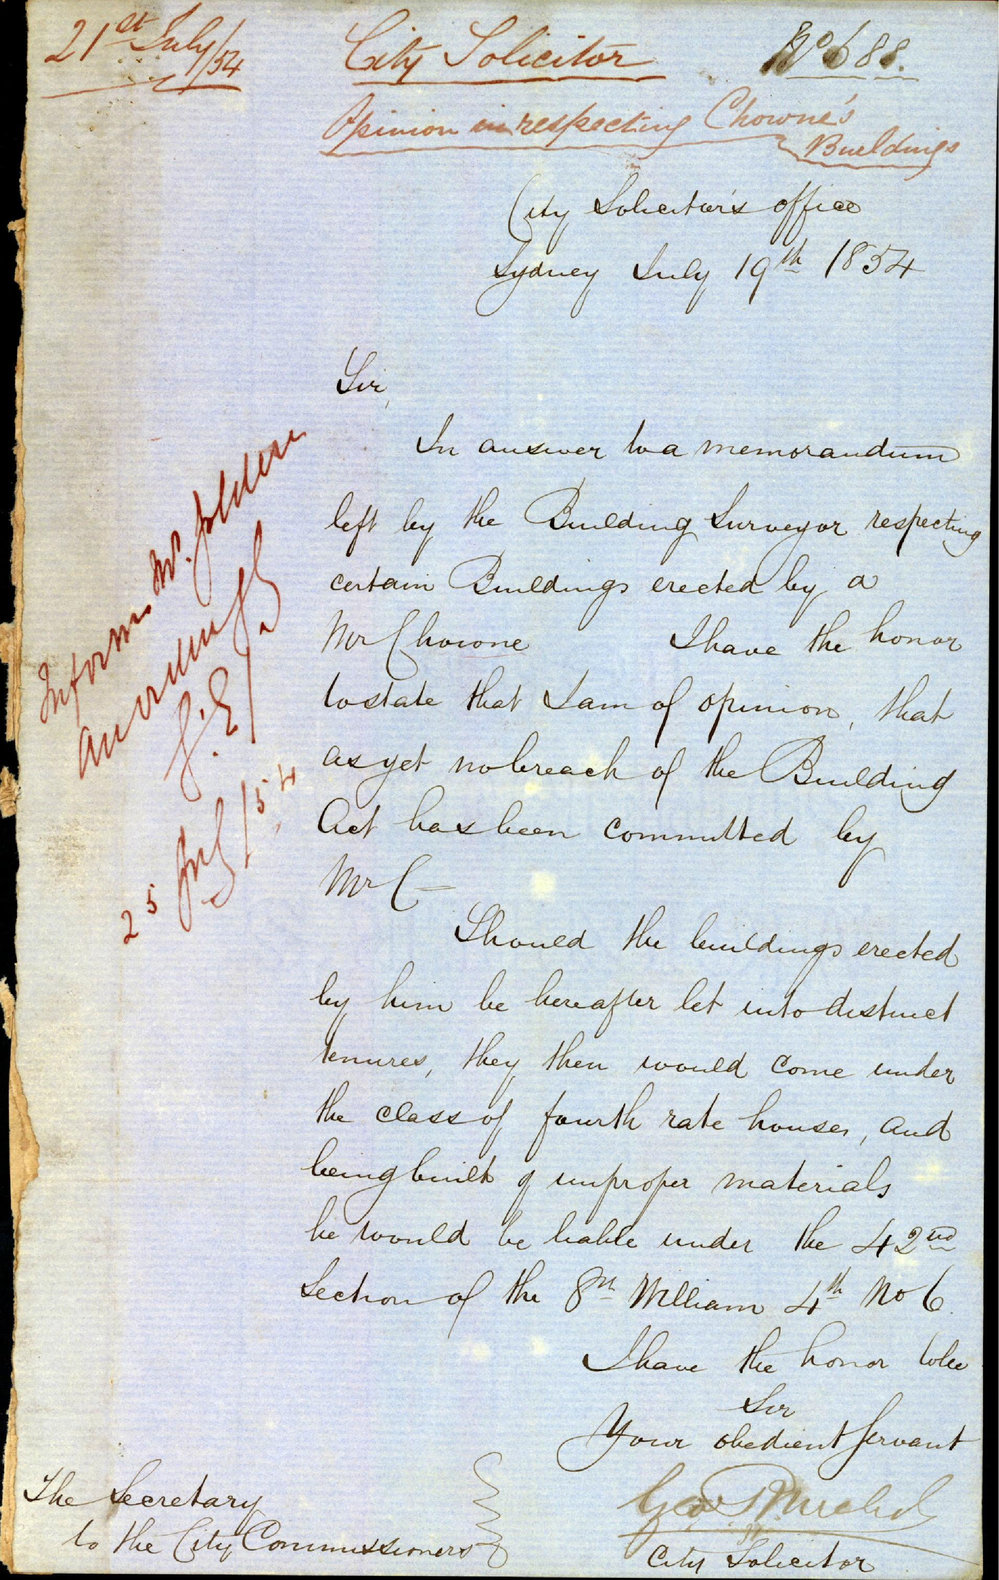 21st July/54
City Solicitor
No 688.
Opinion in respecting Chowne's
Buildings
City Solicitor's office
Sydney July 19th 1854
Sir,
In answer to a memorandum
left by the Building Surveyor respecting
certain Buildings erected by a
Mr Chowne I have the honor
to state that I am of opinion, that
as yet no breach of the Building
Act has been committed by
Mr C—
Should the buildings erected
by him be hereafter let into distinct
tenures, they then would come under
the class of fourth rate houses, and
being built of improper materials
he would be liable under the 42nd
Section of the 8th William 4th No 6
I have the honor to be
Sir
Your obedient Servant
Geo R Nichols
City Solicitor
The Secretary
to the City Commissioners
Inform Mr.
accordingly
G.E
25 July/54